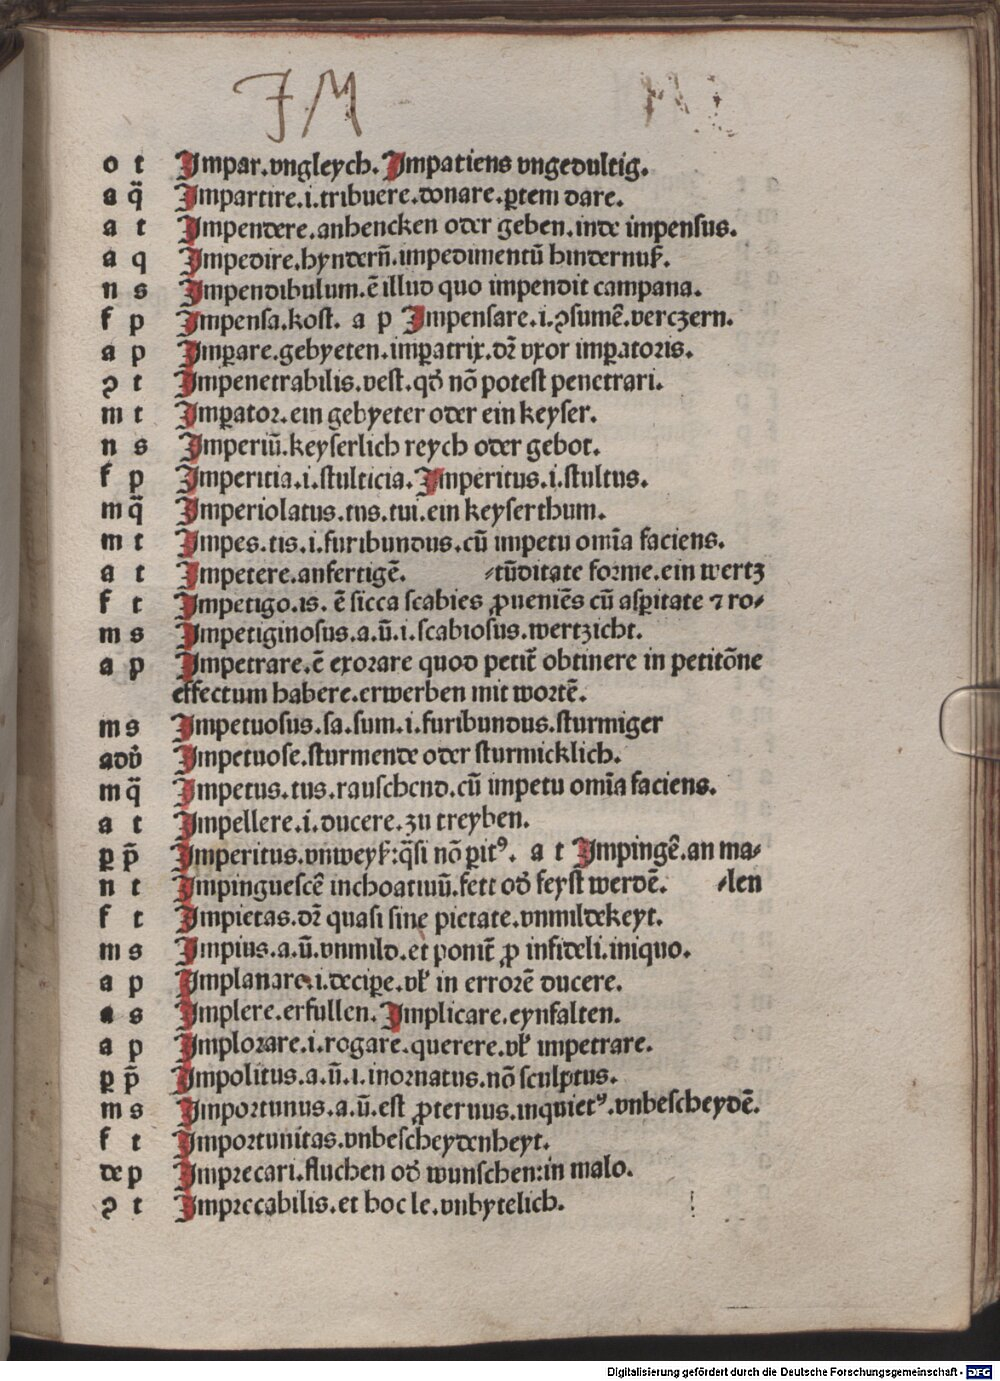 J M
o t Impar.vngleych. Impatiens vngedultig.
a q̃ Impartire.i.tribuere.donare.ꝑtem dare.
a t Impendere.anhencken oder geben.inde impensus.
a q Impedire.hyndern̄.impedimentū hindernuß.
n s Impendibulum.ē illud quo impendit campana.
f p Impensa.kost. a p Impensare.i.ↄsumē.verczern.
a p Imꝑare.gebyeten.imꝑatrix.dr̄ vxor imꝑatoris.
ↄ t Impenetrabilis.vest.qđ nō potest penetrari.
m t Imꝑator.ein gebyeter oder ein keyser.
n s Imperiū.keyserlich reych oder gebot.
f p Imperitia.i.stulticia. Imperitus.i.stultus.
m q̃ Imperiolatus.tus.tui.ein keyserthum.
m t Impes.tis.i.furibundus.cū impetu om̄ia faciens.
a t Impetere.anfertigē. ⸗tūditate forme.ein wertz
f t Impetigo.is. ē sicca scabies ꝓueniēs cū asꝑitate ⁊ ro⸗
m s Impetiginosus.a.ū.i.scabiosus.wertzicht.
a p Impetrare.ē exorare quod petit̄ obtinere in petitōne
effectum habere.erwerben mit wortē.
m s Impetuosus.sa.sum.i.furibundus.sturmiger
adv̉ Impetuose.sturmende oder sturmicklich.
m q̃ Impetus.tus.rauschend.cū impetu om̄ia faciens.
a t Impellere.i.ducere.zu treyben.
ꝑ p̄ Imperitus.vnweyß:q̃si nō ꝑitꝰ. a t Impingē.an ma⸗
n t Impinguescē inchoatiuū.fett ođ feyst werdē. ⸗len
f t Impietas.dr̄ quasi sine pietate.vnmildekeyt.
m s Impius.a.ū.vnmild.et ponit̄ ꝓ infideli.iniquo.
a p Implanare.i.deciꝑe.vl̛ in errorē ducere.
a s Implere.erfullen. Implicare.eynfalten.
a p Implorare.i.rogare.querere.vl̛ impetrare.
ꝑ p̄ Impolitus.a.ū.i.inornatus.nō sculptus.
m s Importunus.a.ū.est ꝓteruus.inquietꝰ.vnbescheydē.
f t Importunitas.vnbescheydenheyt.
de p Imprecari.fluchen ođ wunschen:in malo.
ↄ t Impreccabilis.et hoc le.vnbytelich.
Digitalisierung gefördert durch die Deutsche Forschungsgemeinschaft - DFG